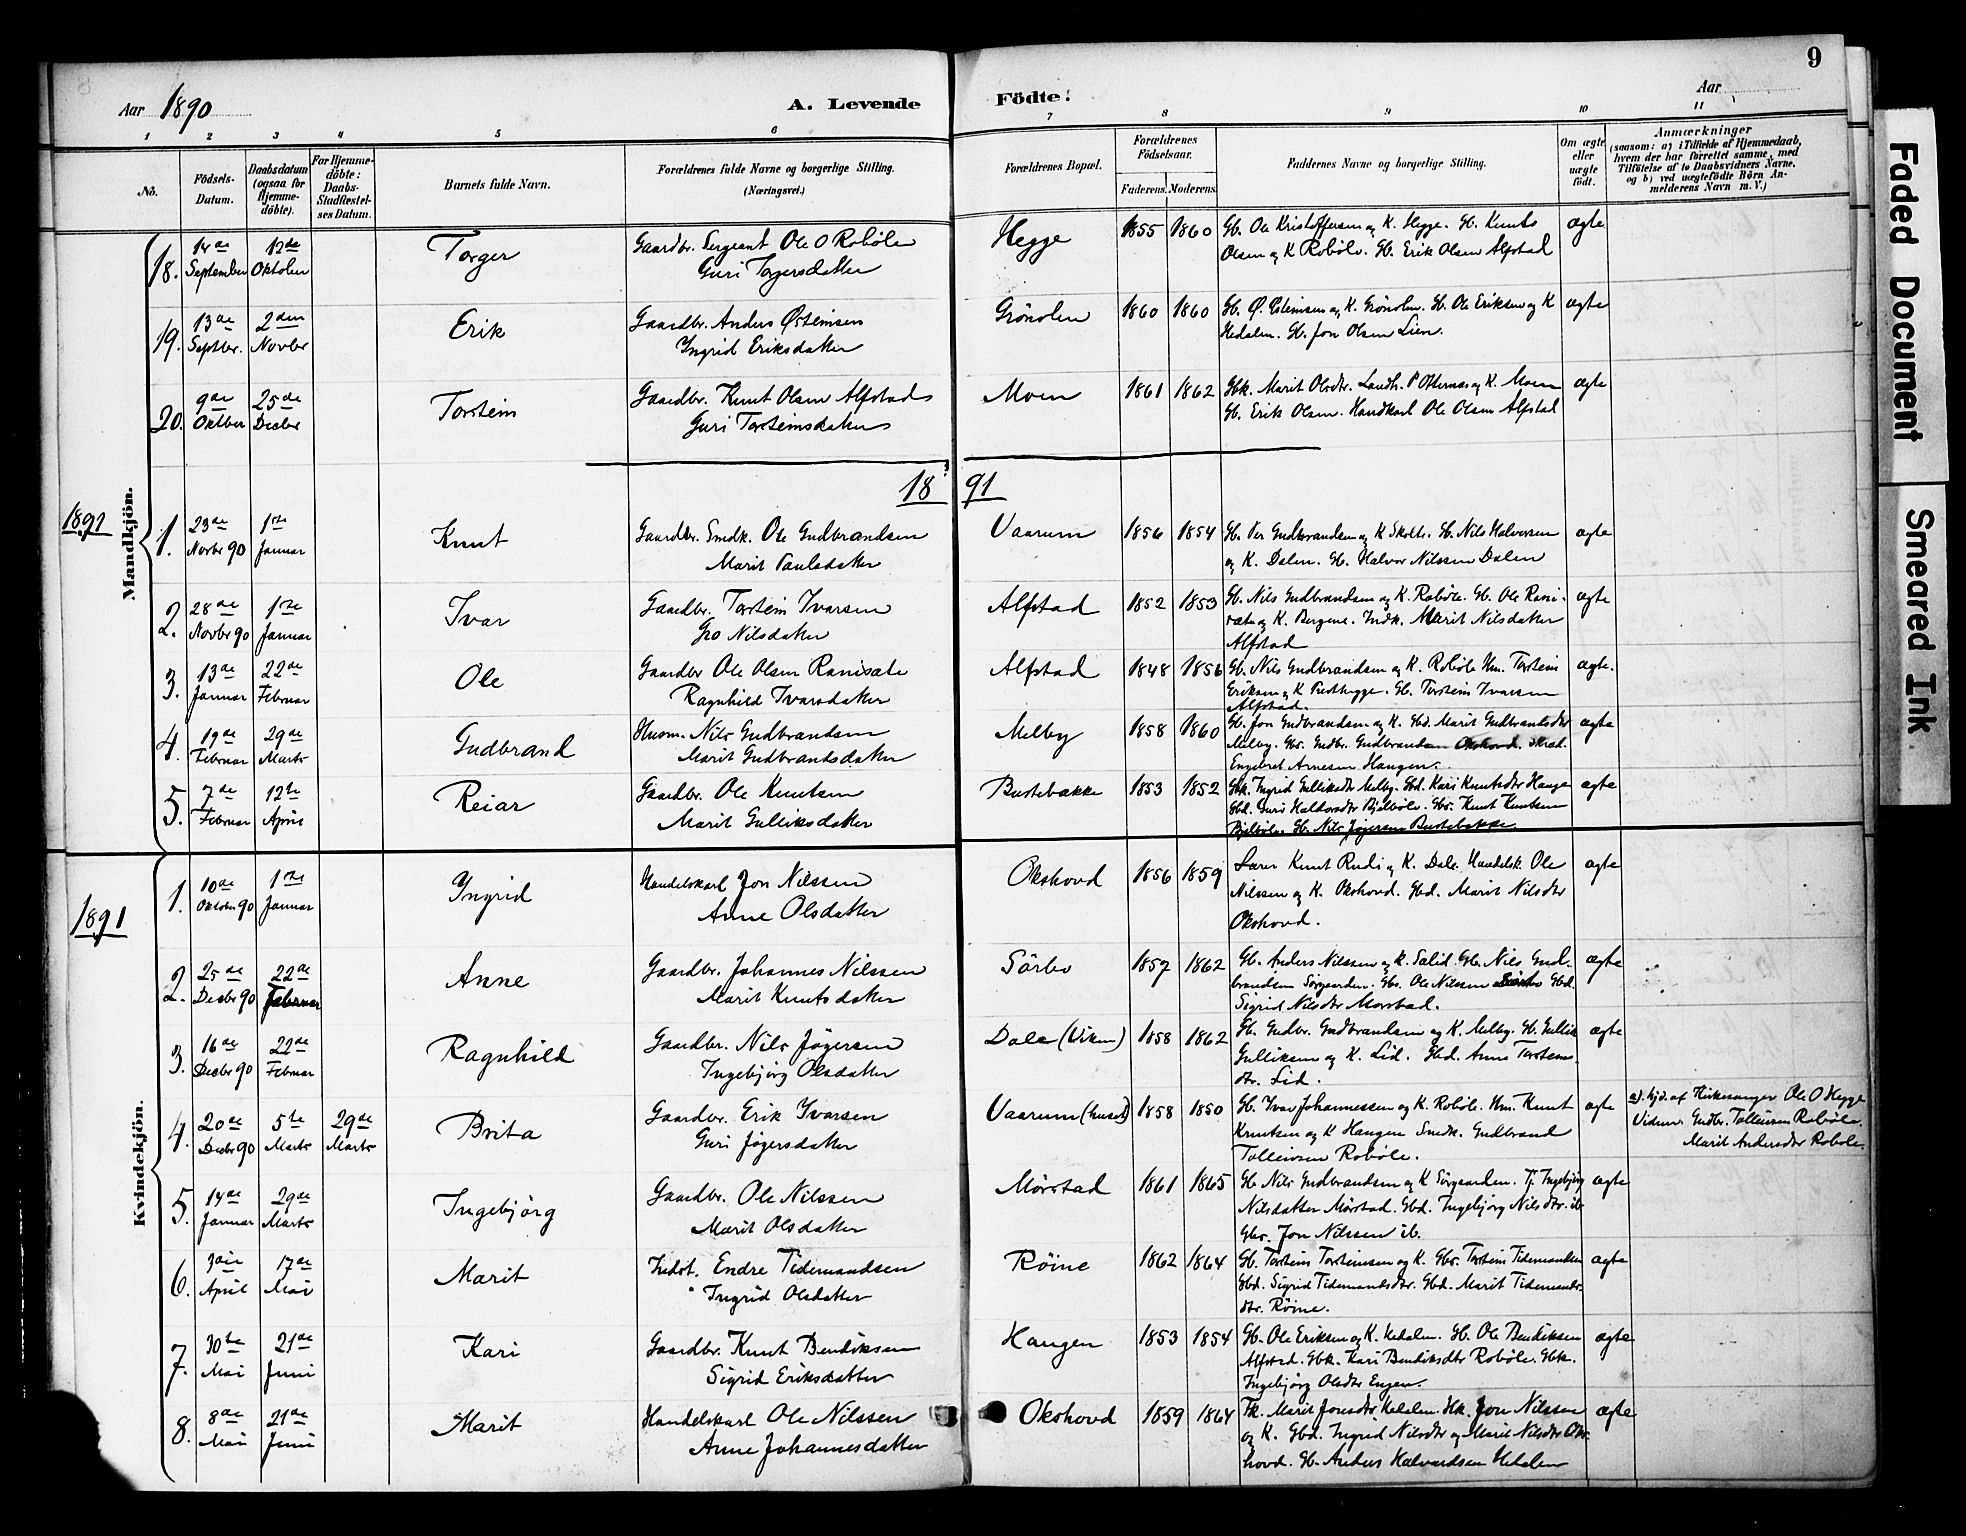 9
Aar 1890
A. Levende Födte.
Aar
1 2 3 4 5 6 7 8 9 10 11
No.
Födsels-
Datum.
Daabsdatum
(ogsaa for
Hjemme-
döbte).
For Hjemme-
döbte:
Daabs-
Stadfæstel-
ses Datum.
Barnets fulde Navn.
Forældrenes fulde Navne og borgerlige Stilling.
(Næringsvei.)
Forældrenes Bopæl.
Forældrenes
Födselsaar.
Faderens. Moderens.
Faddernes Navne og borgerlige Stilling.
Om ægte
eller
uægte
födt.
Anmærkninger
(saasom: a) i Tilfælde af Hjemmedaab,
hvem der har forrettet samme, med
Tilföielse af to Daabsvidners Navne,
og b) ved uægtefödte Börn An-
melderens Navn m. V.)
Mandkjön.
18. 14de September 12te Oktober Torger Gaardbr. Sergeant Ole O Roböle Hegge 1855 1860 Gb. Ole Kristoffersen og K. Hegge. Gb. Knuts ægte
Guri Torgersdatter Olsen og K Roböle. Gb. Erik Olsen Alfstad
19. 13de Septbr. 2den Novbr Erik Gaardbr. Anders Østeinsen Grönolen 1860 1860 Gb. Ø. Østeinsen og K. Grönolen. Gb. Ole Eriksen og K ægte
Ingrid Eriksdatter Hedalen. Gb. Jon Olsen Lien.
20. 9de Oktber 25de Decbr Torstein Gaardbr. Knut Olsen Alfstad Moen 1861 1862 Gbk. Marit Olsdtr. Landh. P Otternes og K. Moen ægte
Guri Torsteinsdatter Gb. Erik Olsen. Handkarl Ole Olsen Alfstad
18 91
1891
1. 23de Novbr 90 1ste Januar Knut Gaardbr. Smedk. Ole Gudbrandsen Vaarum 1856 1854 Gb. Per Gudbrandsen og K Skolte. Gb. Nils Halvorsen ægte
Marit Paulsdatter og K. Dalen. Gb. Halvor Nilssen Dalen
2. 28de Novbr 90 1ste Januar Ivar Gaardbr. Torstein Ivarsen Alfstad 1852 1853 Gb. Nils Gudbrandsen og K. Roböle. Gb. Ole Rani- ægte
Gro Nilsdatter sate og K. Bergene. Indk. Marit Nilsdatter
Alfstad
3. 13de Januar 22de Februar Ole Gaardbr Ole Olsen Ranisate Alfstad 1848 1856 Gb. Nils Gudbrandsen og K. Roböle Hm. Torstein ægte.
Ragnhild Ivarsdatter Eriksen og K Piedthygge. Gb. Torstein Ivarsen
Alfstad.
4. 19de Februar 29de Marts Gudbrand Husm. Nils Gudbrandsen Melby 1858 1860 Gb. Jon Gudbrandsen og K. Gbd. Marit Gudbrandsdtr ægte
Marit Gudbrandsdatter Melby. Gbs. Gudbr. Gudbrandsen Okshovd. Skræd.
Engebret Arnesen Haugen.
5. 7de Februar 12te April Reiar Gaardbr. Ole Knutsen Bustebakke 1853 1852 Gbk. Ingrid Gulliksdtr Melby. Gbd. Kari Knutsdtr Hauge ægte
Marit Gulliksdatter Gbd. Guri Haldorsdtr Bjelböle. Gbs. Knut Knutsen
Bjelböle. Gb. Nils Jøgersen Bustebakke
Kvindekjön.
1891
1. 10de Oktober 90 1ste Januar Ingrid Handelskarl Jon Nilssen Okshovd 1856 1859 Lærer Knut Rudi og K. Dale. Handelsk. Ole ægte
Anne Olsdatter Nilssen og K. Okshovd. Gbd. Marit Nilsdtr
Okshovd.
2. 25de Decbr 90 22de Februar Anne Gaardbr. Johannes Nilssen Sörbo 1857 1862 Gb. Anders Nilssen og K. Salid. Gb. Nils Gud- ægte
Marit Knutsdatter brandsen Sörgaarden. Gbs. Ole Nilssen Sörbo Gbd.
Sigrid Nilsdtr Mørstad.
3. 16de Decbr 90 22de Februar Ragnhild Gaardbr. Nils Jøgersen Dale (Viken) 1858 1862 Gb. Gudbr. Gudbrandsen og K. Melby. Gb. Gullik ægte
Ingebjørg Olsdatter Gulliksen og K. Lid. Gbd. Anne Torsteins-
dtr. Lid.
4. 20de Decbr 90 5te Marts 29de Marts Brita Gaardbr. Erik Ivarsen Vaarum (huset) 1858 1850 Gb. Ivar Johannessen og K. Roböle. Hm. Knut ægte a). hjd. af Kirkesanger Ole O Hegge
Guri Jøgersdatter Knutsen og K Haugen Smedk. Gudbrand Vidner Gudbr. Tolleivsen Roböle.
Tolleivsen Roböle. Marit Andersdtr Roböle.
5. 14de Januar 29de Marts Ingebjörg Gaardbr. Ole Nilssen Mørstad 1861 1865 Gb Nils Gudbrandsen og K Sörgaarden. Tj. Ingebjörg ægte
Marit Olsdatter Nilsdatter Mørstad. Gbd. Ingebjörg Nilsdtr. ib
Gbs. Jon Nilssen ib.
6. 3die April 17de Mai Marit Inderst. Endre Tidemandsen Röine 1862 1864 Gb. Torstein Torsteinsen og K. Gbs. Torstein Tidemandsen ægte
Ingrid Olsdatter Gbd. Sigrid Tidemandsdtr. Gbd. Marit Tidemands-
dtr. Röine.
7. 30te Mai 21de Juni Kari Gaardbr. Knut Bendiksen Haugen 1853 1854 Gb. Ole Eriksen og K. Hedalen. Gb. Ole Bendiksen ægte
Sigrid Eriksdatter Alfstad. Gbk. Kari Bendiksdtr Roböle. Gbk.
Ingebjörg Olsdtr Engen.
8. 8de Mai 21de Juni Marit Handelskarl Ole Nilssen Okshovd 1859 1864 Fk. Marit Jonsdtr Hedalen. Hk. Jon Nilssen ægte
Anne Johannesdatter og K. Gbd. Ingrid Nilsdtr og Marit Nilsdtr Oks-
hovd. Gb. Anders Halvardsen Hedalen
Faded Document
Smeared Ink